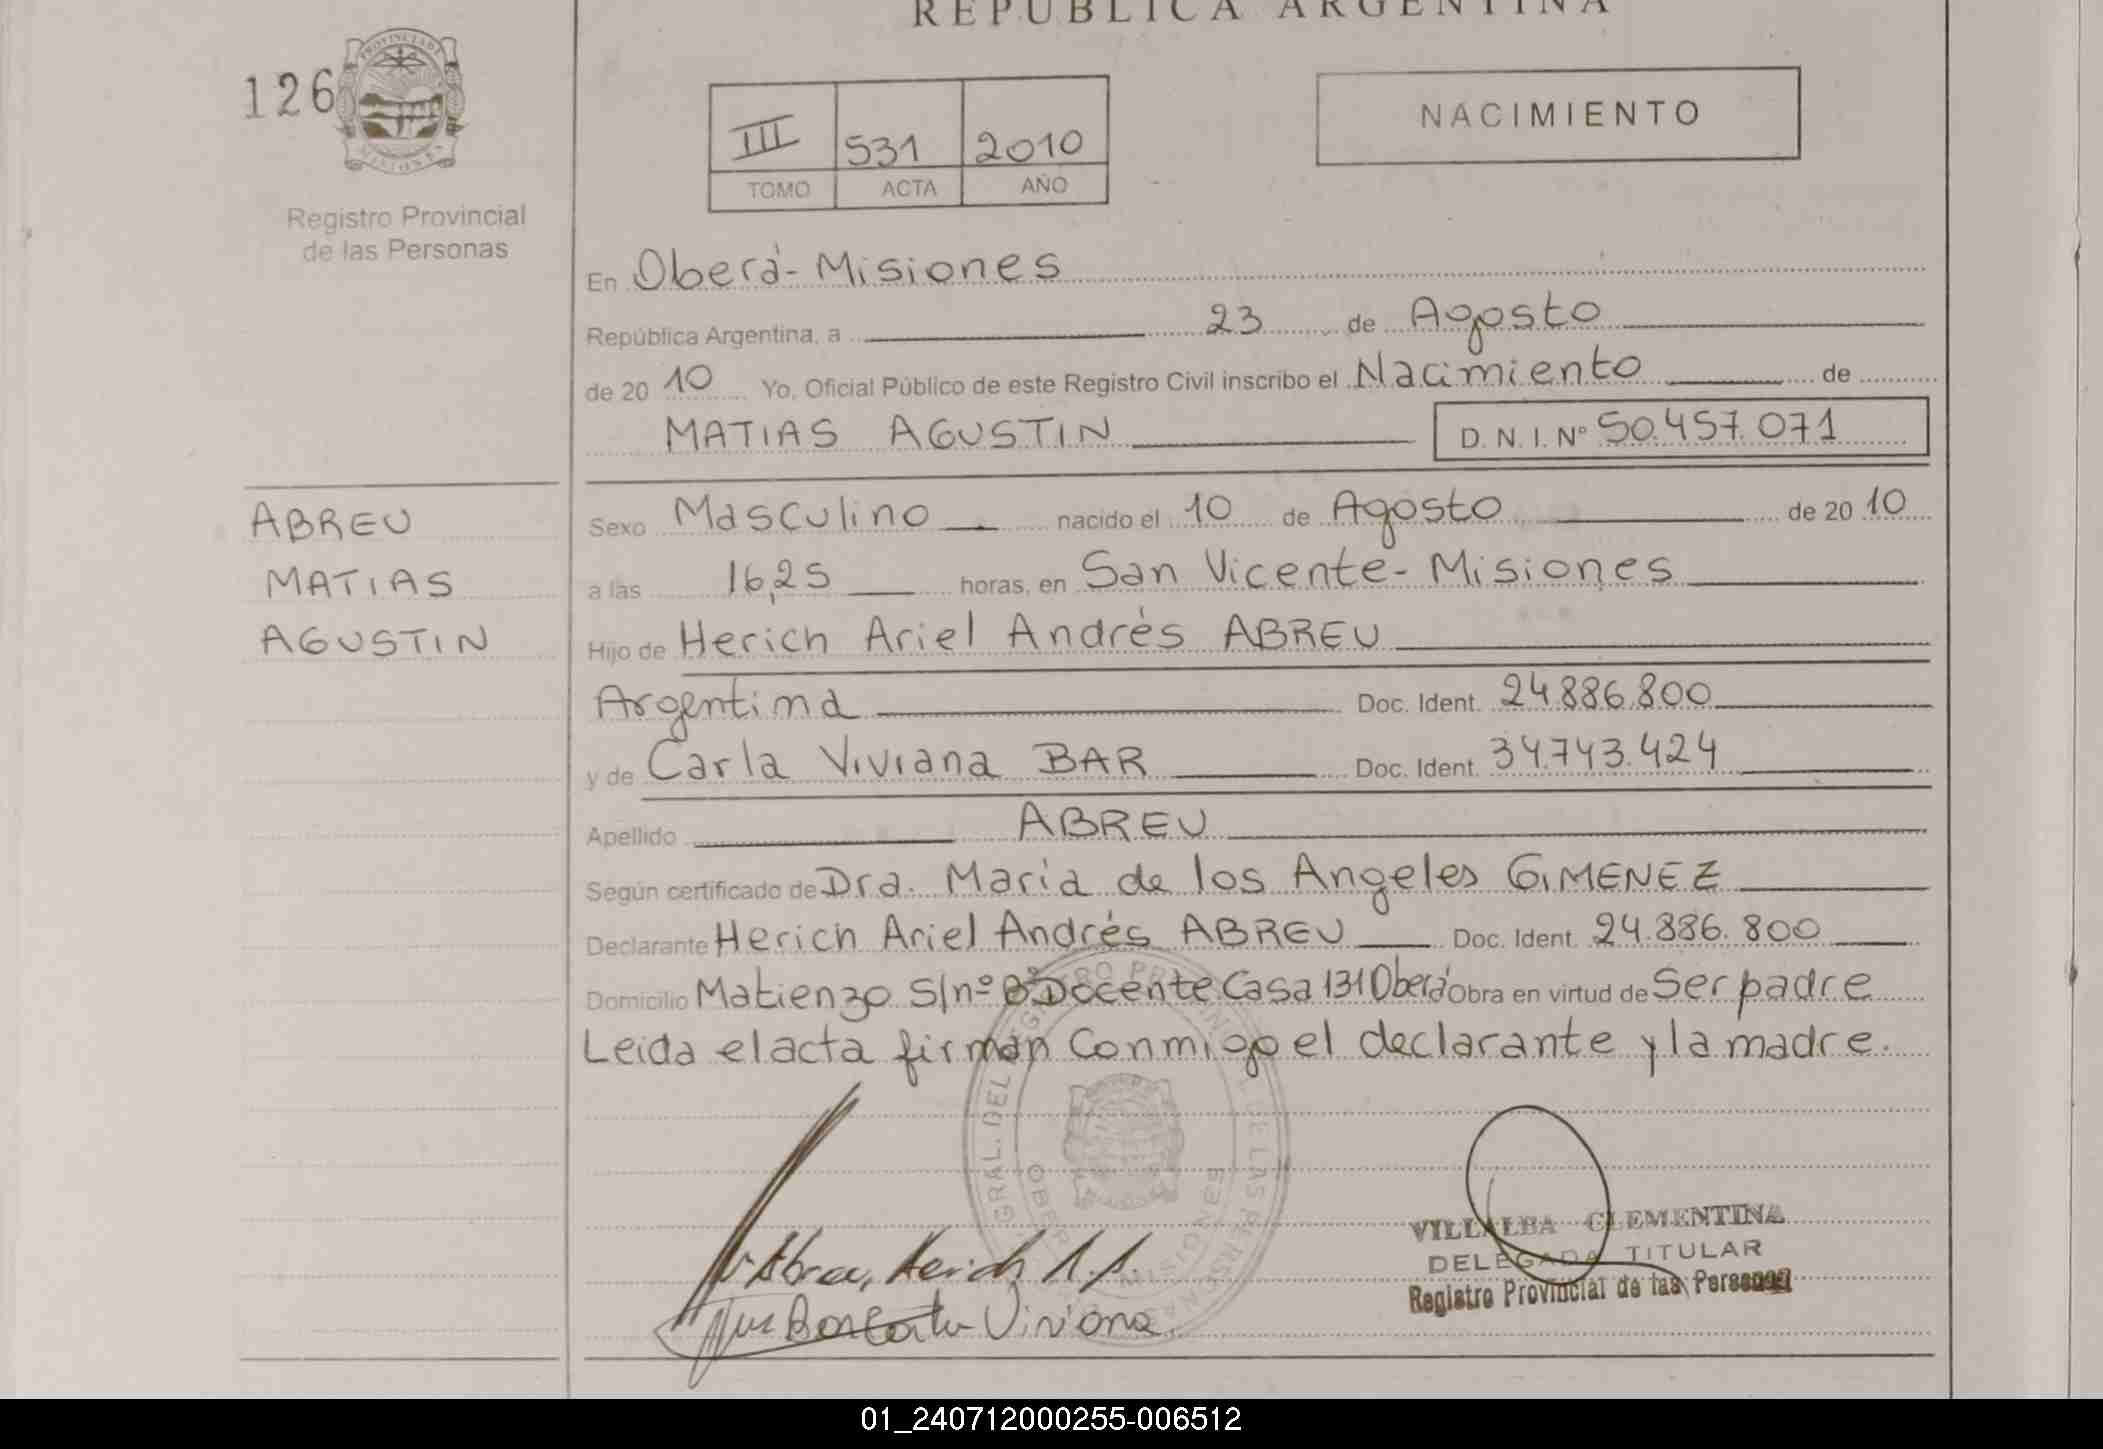 REPUBLICA ARGENTINA
126
PROVINCIA DE
MISIONES
Registro Provincial
de las Personas
III 531 2010
TOMO ACTA AÑO
NACIMIENTO
En Oberá - Misiones
República Argentina, a 23 de Agosto
de 20 10 Yo, Oficial Público de este Registro Civil inscribo el Nacimiento de
MATIAS AGUSTIN D.N.I. Nº 50.457.071
ABREU
MATIAS
AGUSTIN
Sexo Masculino nacido el 10 de Agosto de 20 10
a las 16,25 horas, en San Vicente - Misiones
Hijo de Herich Ariel Andrés ABREU
Argentina Doc. Ident. 24.886.800
y de Carla Viviana BAR Doc. Ident. 34.743.424
Apellido ABREU
Según certificado de Dra. Maria de los Angeles GIMENEZ
Declarante Herich Ariel Andrés ABREU Doc. Ident. 24.886.800
Domicilio Matienzo S/nº Bº Docente Casa 131 Oberá Obra en virtud de Ser padre
Leida el acta firman conmigo el declarante y la madre.
Abreu, Herich A. A.
Viviana
VILLALBA CLEMENTINA
DELEGADA TITULAR
Registro Provincial de las Personas
01_240712000255-006512